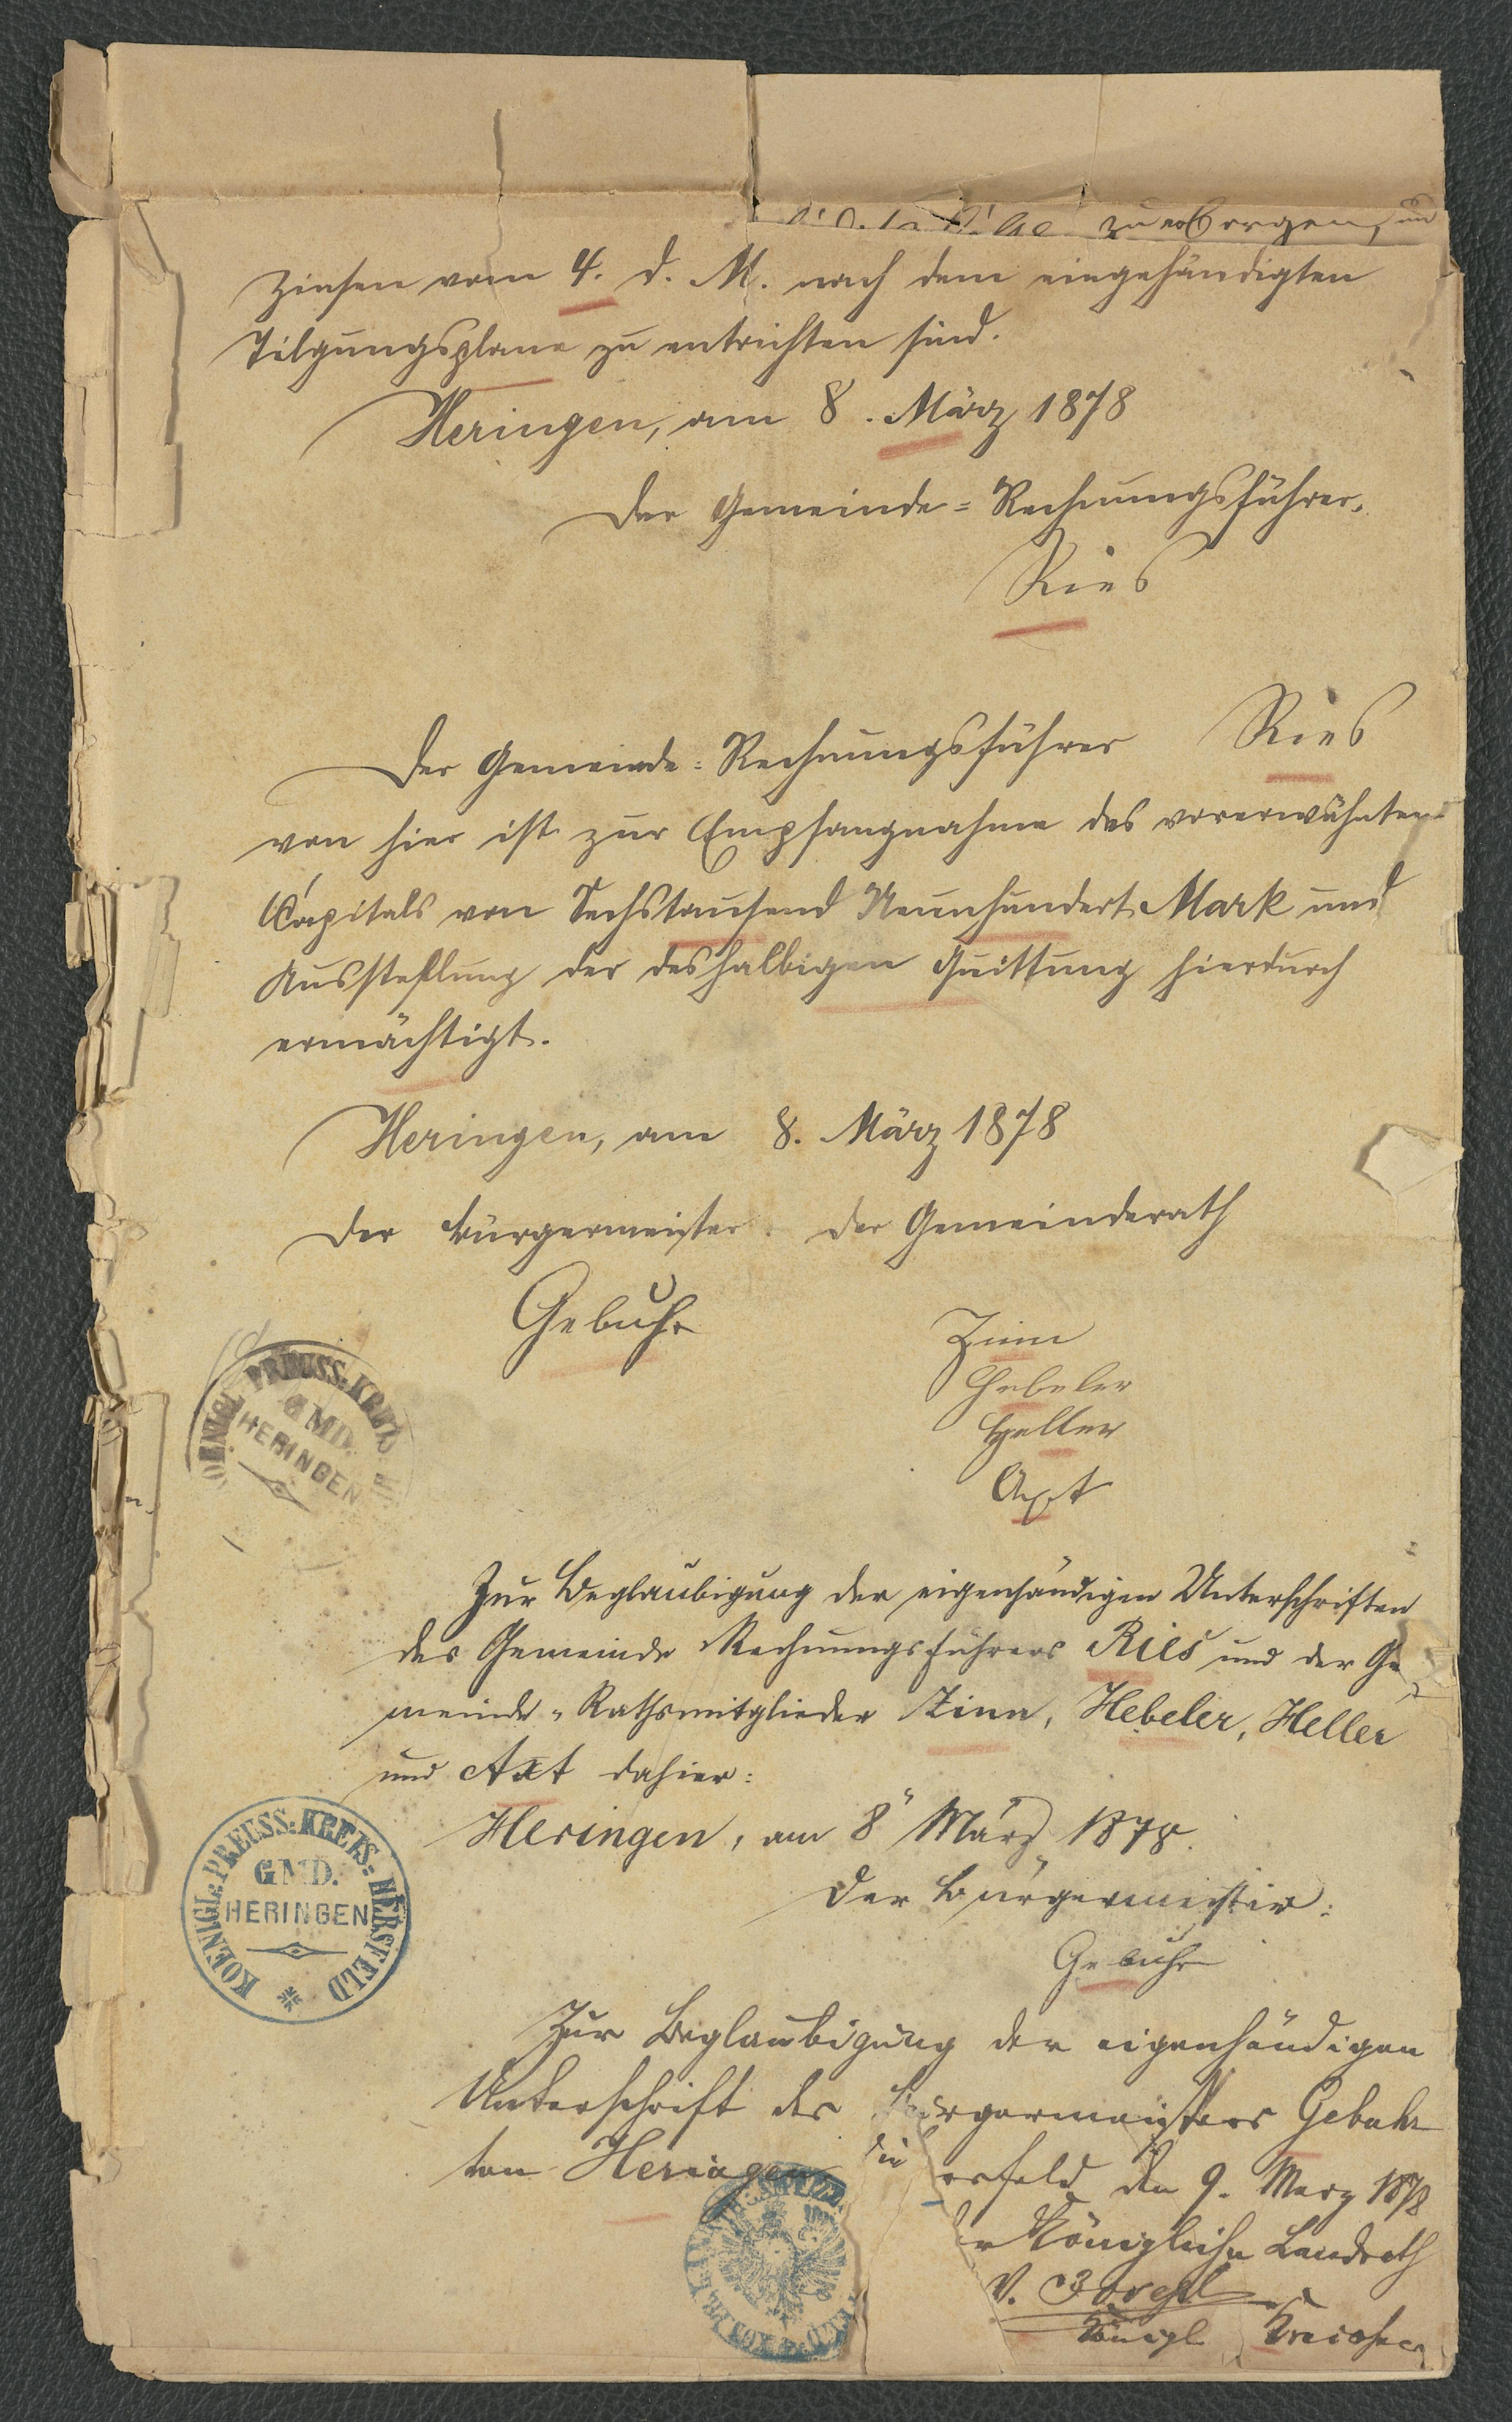 zu versorgen, und
Zinsen vom 4. d. M. nach dem eingehändigten
Tilgungsplane zu entrichten sind.
Heringen, am 8. März 1878
Der Gemeinde=Rechnungsführer,
Ries
Der Gemeinde=Rechnungsführer Ries
von hier ist zur Empfangnahme des vorerwähnten
Capitals von Sechstausend Neunhundert Mark und
Ausstellung der deshalbigen Quittung hierdurch
ermächtigt.
Heringen, am 8. März 1878
Der Bürgermeister. Der Gemeinderath
Gebuhr
Zinn
Hebeler
Heller
Axt
OENIGL. PREUSS. KREIS
GMD.
HERINGEN
Zur Beglaubigung der eigenhändigen Unterschriften
des Gemeinde Rechnungsführers Ries und der Ge
meinde=Rathsmitglieder Zinn, Hebeler, Heller
und Axt dahier:
Heringen, am 8" März 1878.
Der Bürgermeister:
Gebuhr
KOENIGL. PREUSS. KREIS: HERSFELD
GMD.
HERINGEN
Zur Beglaubigung der eigenhändigen
Unterschrift des Bürgermeisters Gebuhr
von Heringen
ersfeld den 9. Merz 1878
r Königliche Landrath
V.
Königl.